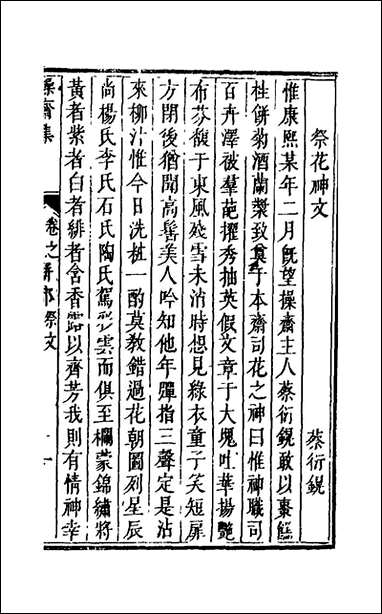 祭花神文
蔡衍鎤
惟康熙某年二月既望操齋主人蔡衍鎤敢以棗餻
桂餅菊酒蘭漿致奠于本齋司花之神曰惟神職司
百卉澤被羣葩擢秀抽英假文章于大塊吐華揚艶
布芬馥于東風殘雪未消時想見綠衣童子笑短扉
方閉後猶聞高髻美人吟知他年彈指三聲定是沾
來柳汁惟今日洗樁一酌莫教錯過花朝圖列星辰
尚楊氏李氏石氏陶氏駕彩雲而俱至欄蒙錦繡將
黃者紫者白者緋者含香露以齊芳我則有情神幸
操齋集
卷之
駢部祭文